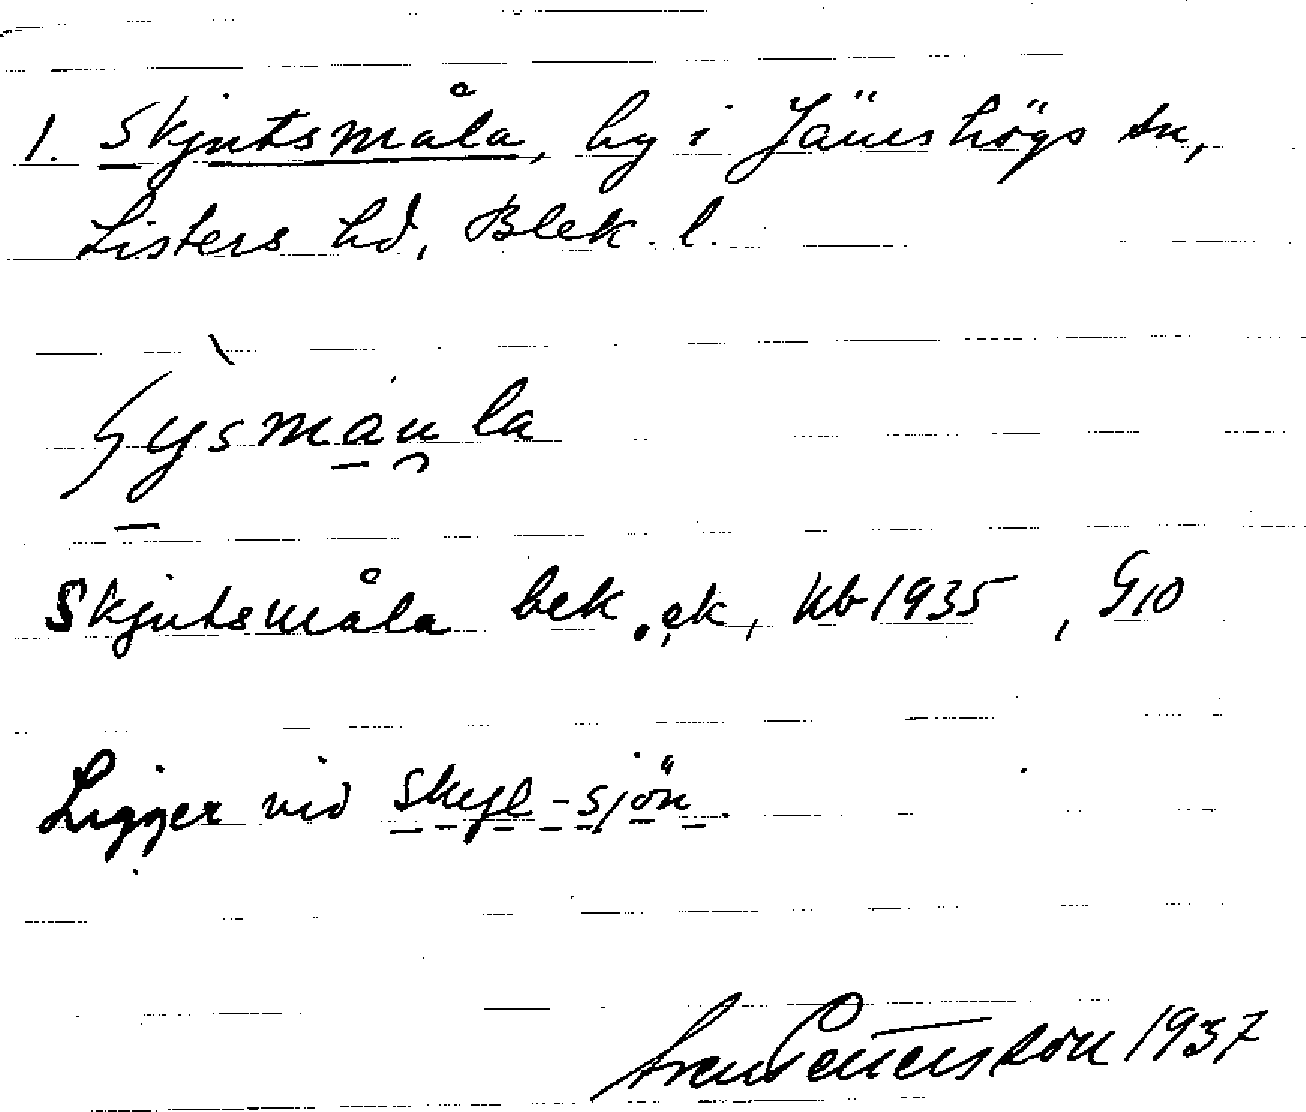 1. Skjutsmåla, by i Jämshögs sn,
Listers hd, Blek. l.
ʃỳ̠sma̠u̯la
Skjutsmåla bek. ek, Kb 1935, G10
Ligger vid Skygl-sjön
Sven Pettersson 1937